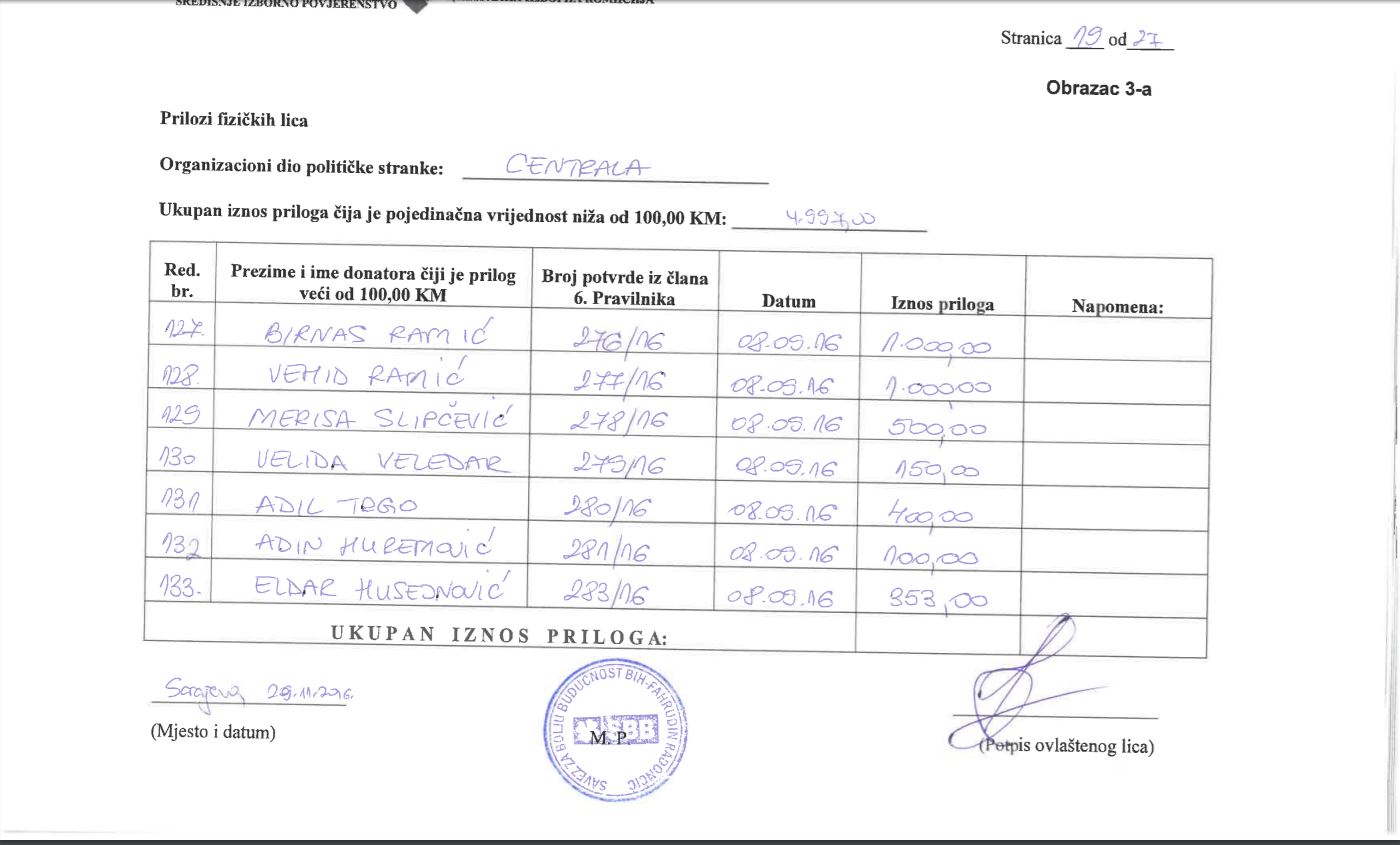 SREDIŠNJE IZBORNO POVJERENSTVO
Stranica 19 od 27
Obrazac 3-a
Prilozi fizičkih lica
Organizacioni dio političke stranke: CENTRALA
Ukupan iznos priloga čija je pojedinačna vrijednost niža od 100,00 KM: 4.997,00
Red. br. Prezime i ime donatora čiji je prilog veći od 100,00 KM Broj potvrde iz člana 6. Pravilnika Datum Iznos priloga Napomena:
127. BIRNAS RAMIĆ 276/16 08.09.16 1.000,00
128. VEHID RAMIĆ 277/16 08.09.16 1.000,00
129 MERISA SLIPČEVIĆ 278/16 08.09.16 500,00
130 VELIDA VELEDAR 279/16 08.09.16 150,00
131 ADIL TRGO 280/16 08.09.16 400,00
132 ADIN HUREMOVIĆ 281/16 08.09.16 100,00
133. ELDAR HUSEJNOVIĆ 283/16 08.09.16 353,00
UKUPAN IZNOS PRILOGA:
Sarajevo, 29.11.2016.
(Mjesto i datum)
SAVEZ ZA BOLJU BUDUĆNOST BIH-FAHRUDIN RADONČIĆ
SBB
M.P.
(Potpis ovlaštenog lica)